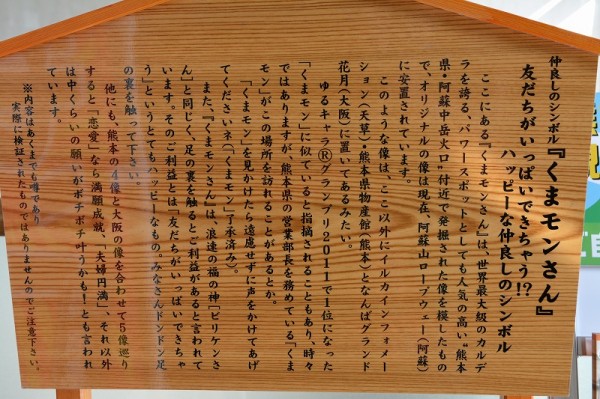 仲良しのシンボル『くまモンさん』
友だちがいっぱいできちゃう!?
ハッピーな仲良しのシンボル
ここにある『くまモンさん』は、世界最大級のカルデ
ラを誇る、パワースポットとしても人気の高い“熊本
県・阿蘇中岳火口”付近で発掘された像を模したもの
で、オリジナルの像は現在、阿蘇山ロープウェー(阿蘇)
に安置されています。
このような像は、ここ以外にイルカインフォメー
ション(天草)・熊本県物産館(熊本)となんばグランド
花月(大阪)に置いてあるみたい。
ゆるキャラⓇグランプリ2011で1位になった
「くまモン」に似ていると指摘されることもあり、時々
ではありますが、熊本県の営業部長を務めている「くま
モン」がこの場所を訪れることがあるとか。
「くまモン」を見かけたら遠慮せずに声をかけてあげ
てくださいネ(「くまモン」了承済み)。
また、『くまモンさん』は、浪速の福の神「ビリケンさ
ん」と同じく、足の裏を触るとご利益があると言われて
います。そのご利益とは「友だちがいっぱいできちゃ
う」というとてもハッピーなもの。みなさんドンドン足
の裏を触って下さい。
他にも、熊本の4像と大阪の像を合わせて5像巡り
すると「恋愛」なら満願成就、「夫婦円満」、それ以外
は中くらいの願いがボチボチ叶うかも!とも言われ
ています。
※内容はあくまでも噂であり
実際に検証されたものではありませんのでご注意下さい。